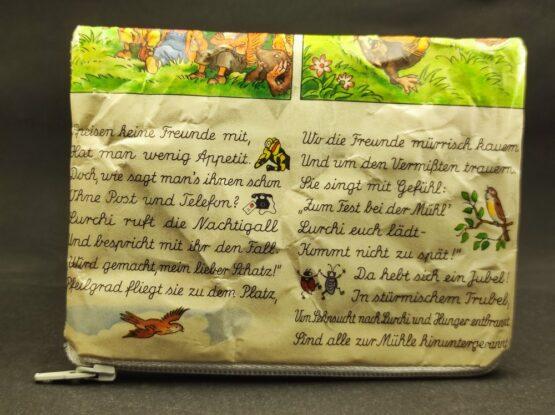 Speisen keine Freunde mit,
Hat man wenig Appetit.
Doch, wie sagt man's ihnen schon
Ohne Post und Telefon?
Lurchi ruft die Nachtigall
Und bespricht mit ihr den Fall.
„Wird gemacht, mein lieber Schatz!"
Pfeilgrad fliegt sie zu dem Platz,
Wo die Freunde mürrisch kauern
Und um den Vermißten trauern.
Sie singt mit Gefühl:
„Zum Fest bei der Mühl'
Lurchi euch lädt-
Kommt nicht zu spät!"
Da hebt sich ein Jubel!
In stürmischem Trubel,
Von Sehnsucht nach Lurchi und Hunger entbrannt
Sind alle zur Mühle hinuntergerannt